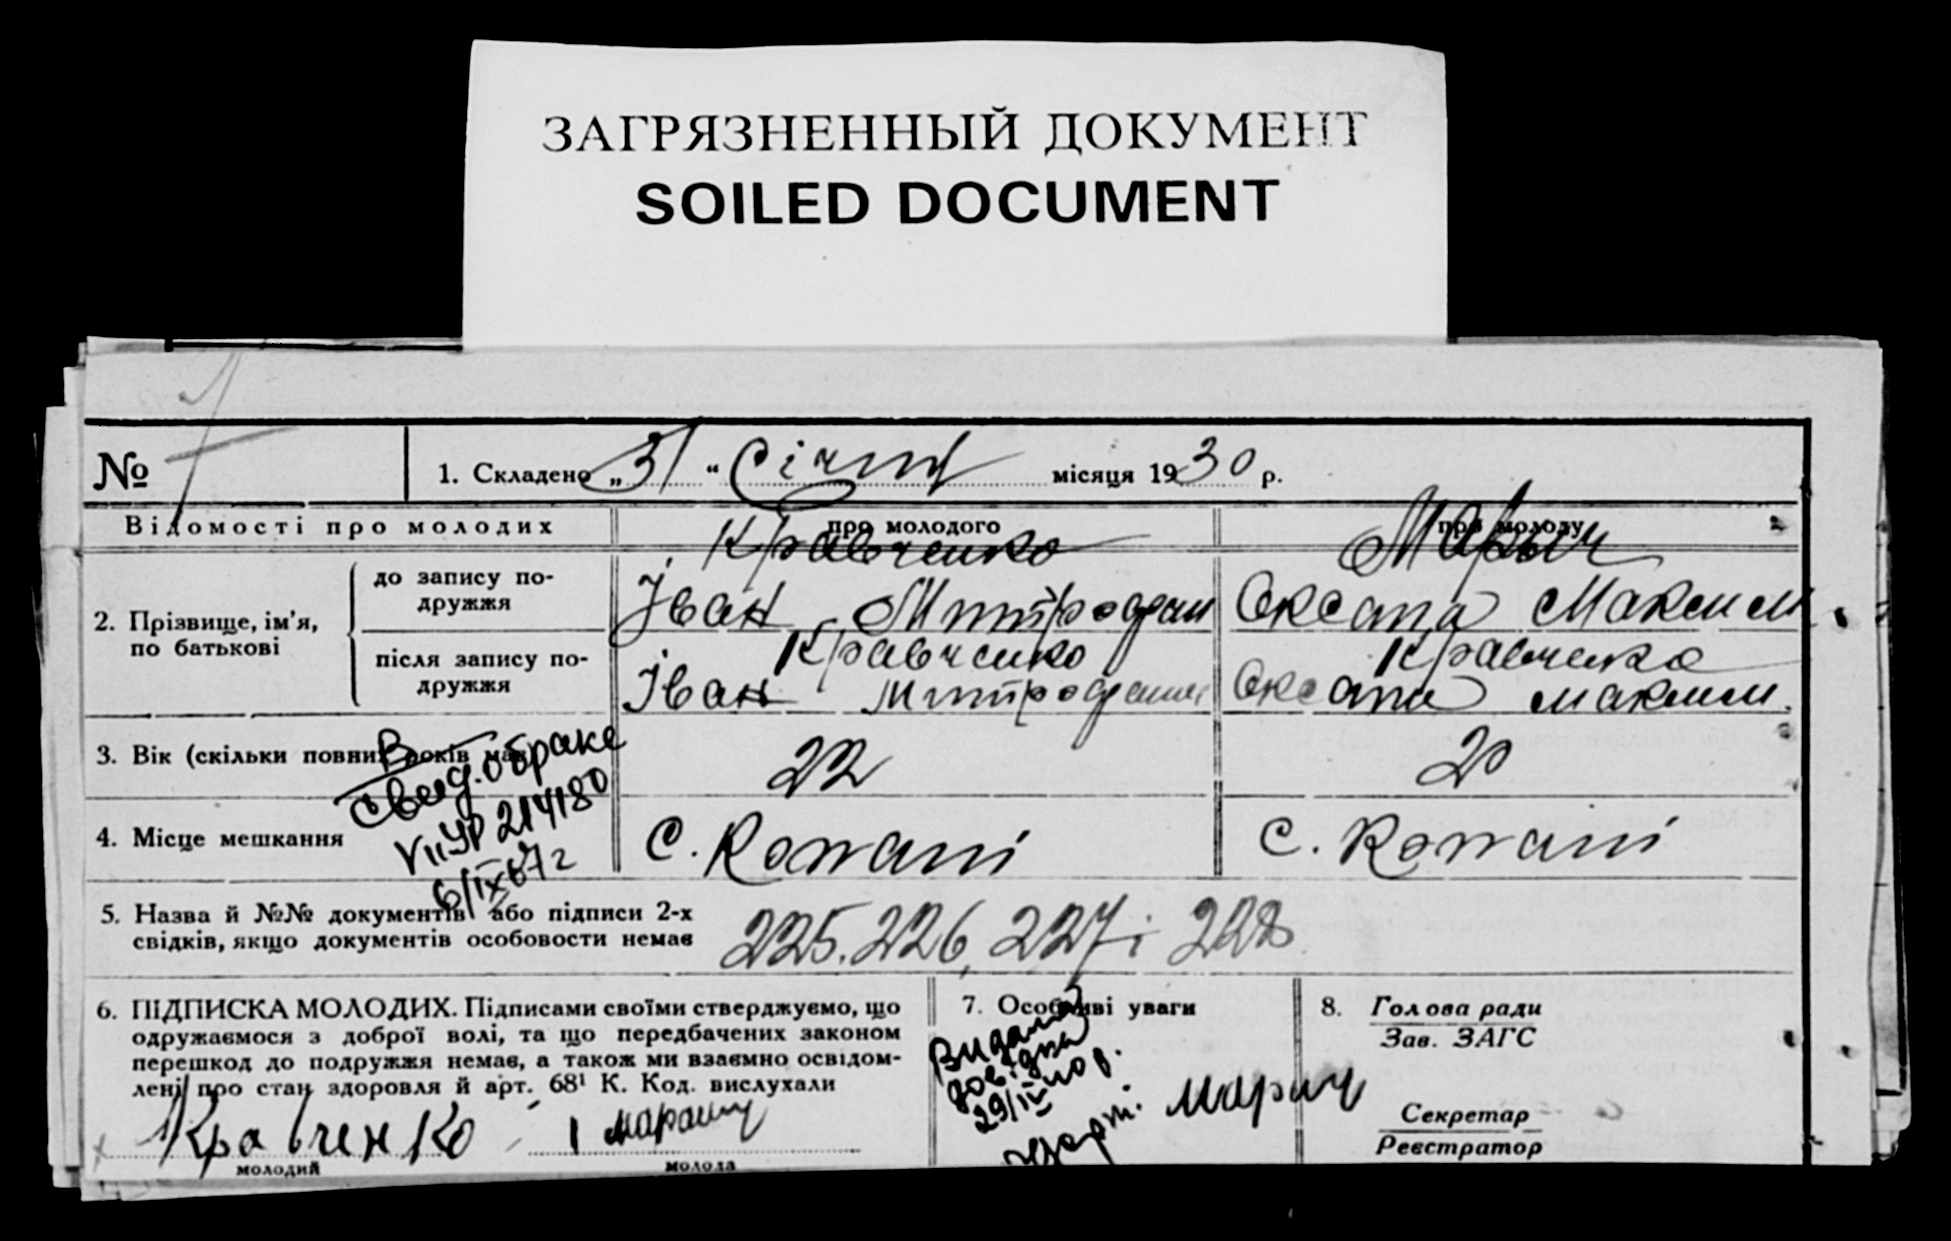 ЗАГРЯЗНЕННЫЙ ДОКУМЕНТ
SOILED DOCUMENT
№ 7
1. Складено „31“ Січня місяця 1930 р.
Відомості про молодих
про молодого
про молоду
2. Прізвище, ім’я, по батькові
до запису подружжя
Кравченко
Іван Митрофан
Марыч
Оксана Максим.
після запису подружжя
Кравченко
Іван Митрофан
Кравченко
Оксана Максим.
3. Вік (скільки повних років має)
22
20
В
свид. о браке
VIIУР 214180
6/IX 67 г
4. Місце мешкання
с. Копани
с. Копани
5. Назва й №№ документів або підписи 2-х
свідків, якщо документів особовости немає
225, 226, 227 і 228
6. ПІДПИСКА МОЛОДИХ. Підписами своїми стверджуємо, що
одружаємося з доброї волі, та що передбачених законом
перешкод до подружжя немає, а також ми взаємно освідом-
лені про стан здоровля й арт. 68¹ К. Код. вислухали
Кравченко
молодий
молода
7. Особливі уваги
Видана
довідка
29/IV 40 р.
Марич
8. Голова ради
Зав. ЗАГС
Секретар
Реєстратор